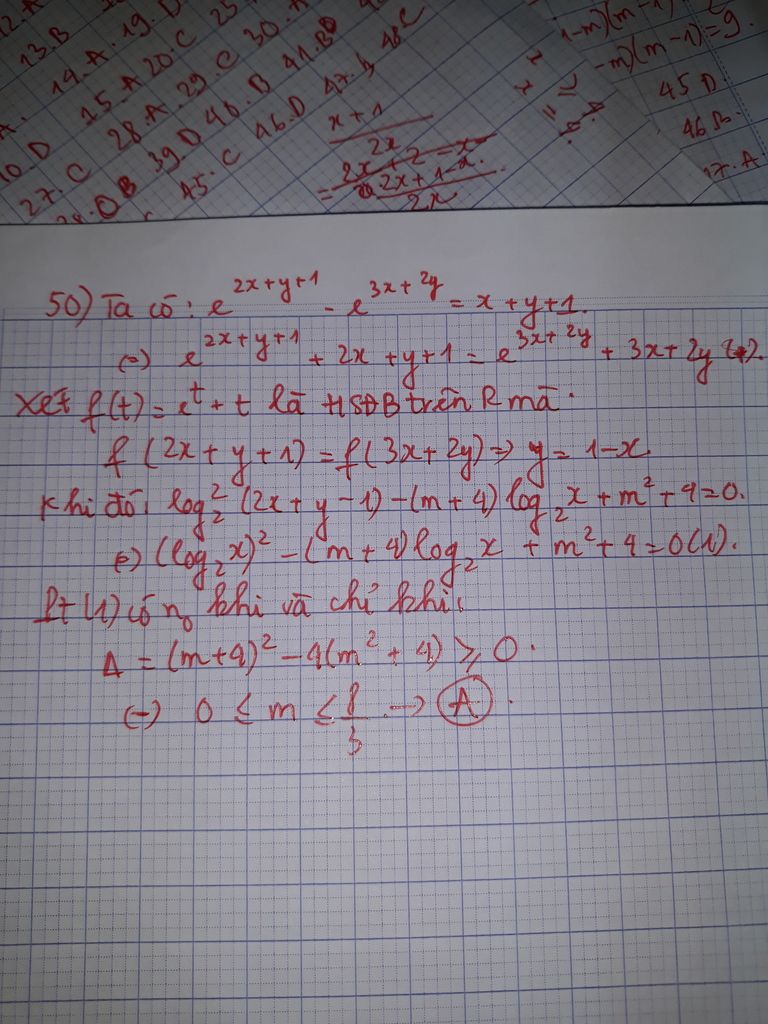 13.B
14.A. 19.D
15.A 20.C 25
10.D
28.A 29.C 30.A
27.C
39.D 40.B 41.B
45.C 46.D 47.A 48.C
x+1
2x
2x+2-x
= 2x+1-x.
2x
x ≥ 4.
x = 4.
1-m)(m-1)
-m)(m-1)=9.
45 D
46 B.
17.A
50) Ta có: e^{2x+y+1} - e^{3x+2y} = x+y+1.
(=) e^{2x+y+1} + 2x+y+1 = e^{3x+2y} + 3x+2y
Xét f(t) = e^t + t là HSĐB trên R mà.
f(2x+y+1) = f(3x+2y) => y = 1-x
Khi đó: log_2^2 (2x+y-1) - (m+4) log_2 x + m^2 + 4 = 0.
(=) (log_2 x)^2 - (m+4) log_2 x + m^2 + 4 = 0 (1).
Pt (1) có n_0 khi và chỉ khi:
Δ = (m+4)^2 - 4(m^2 + 4) ≥ 0.
(=) 0 ≤ m ≤ 8/3 -> A.